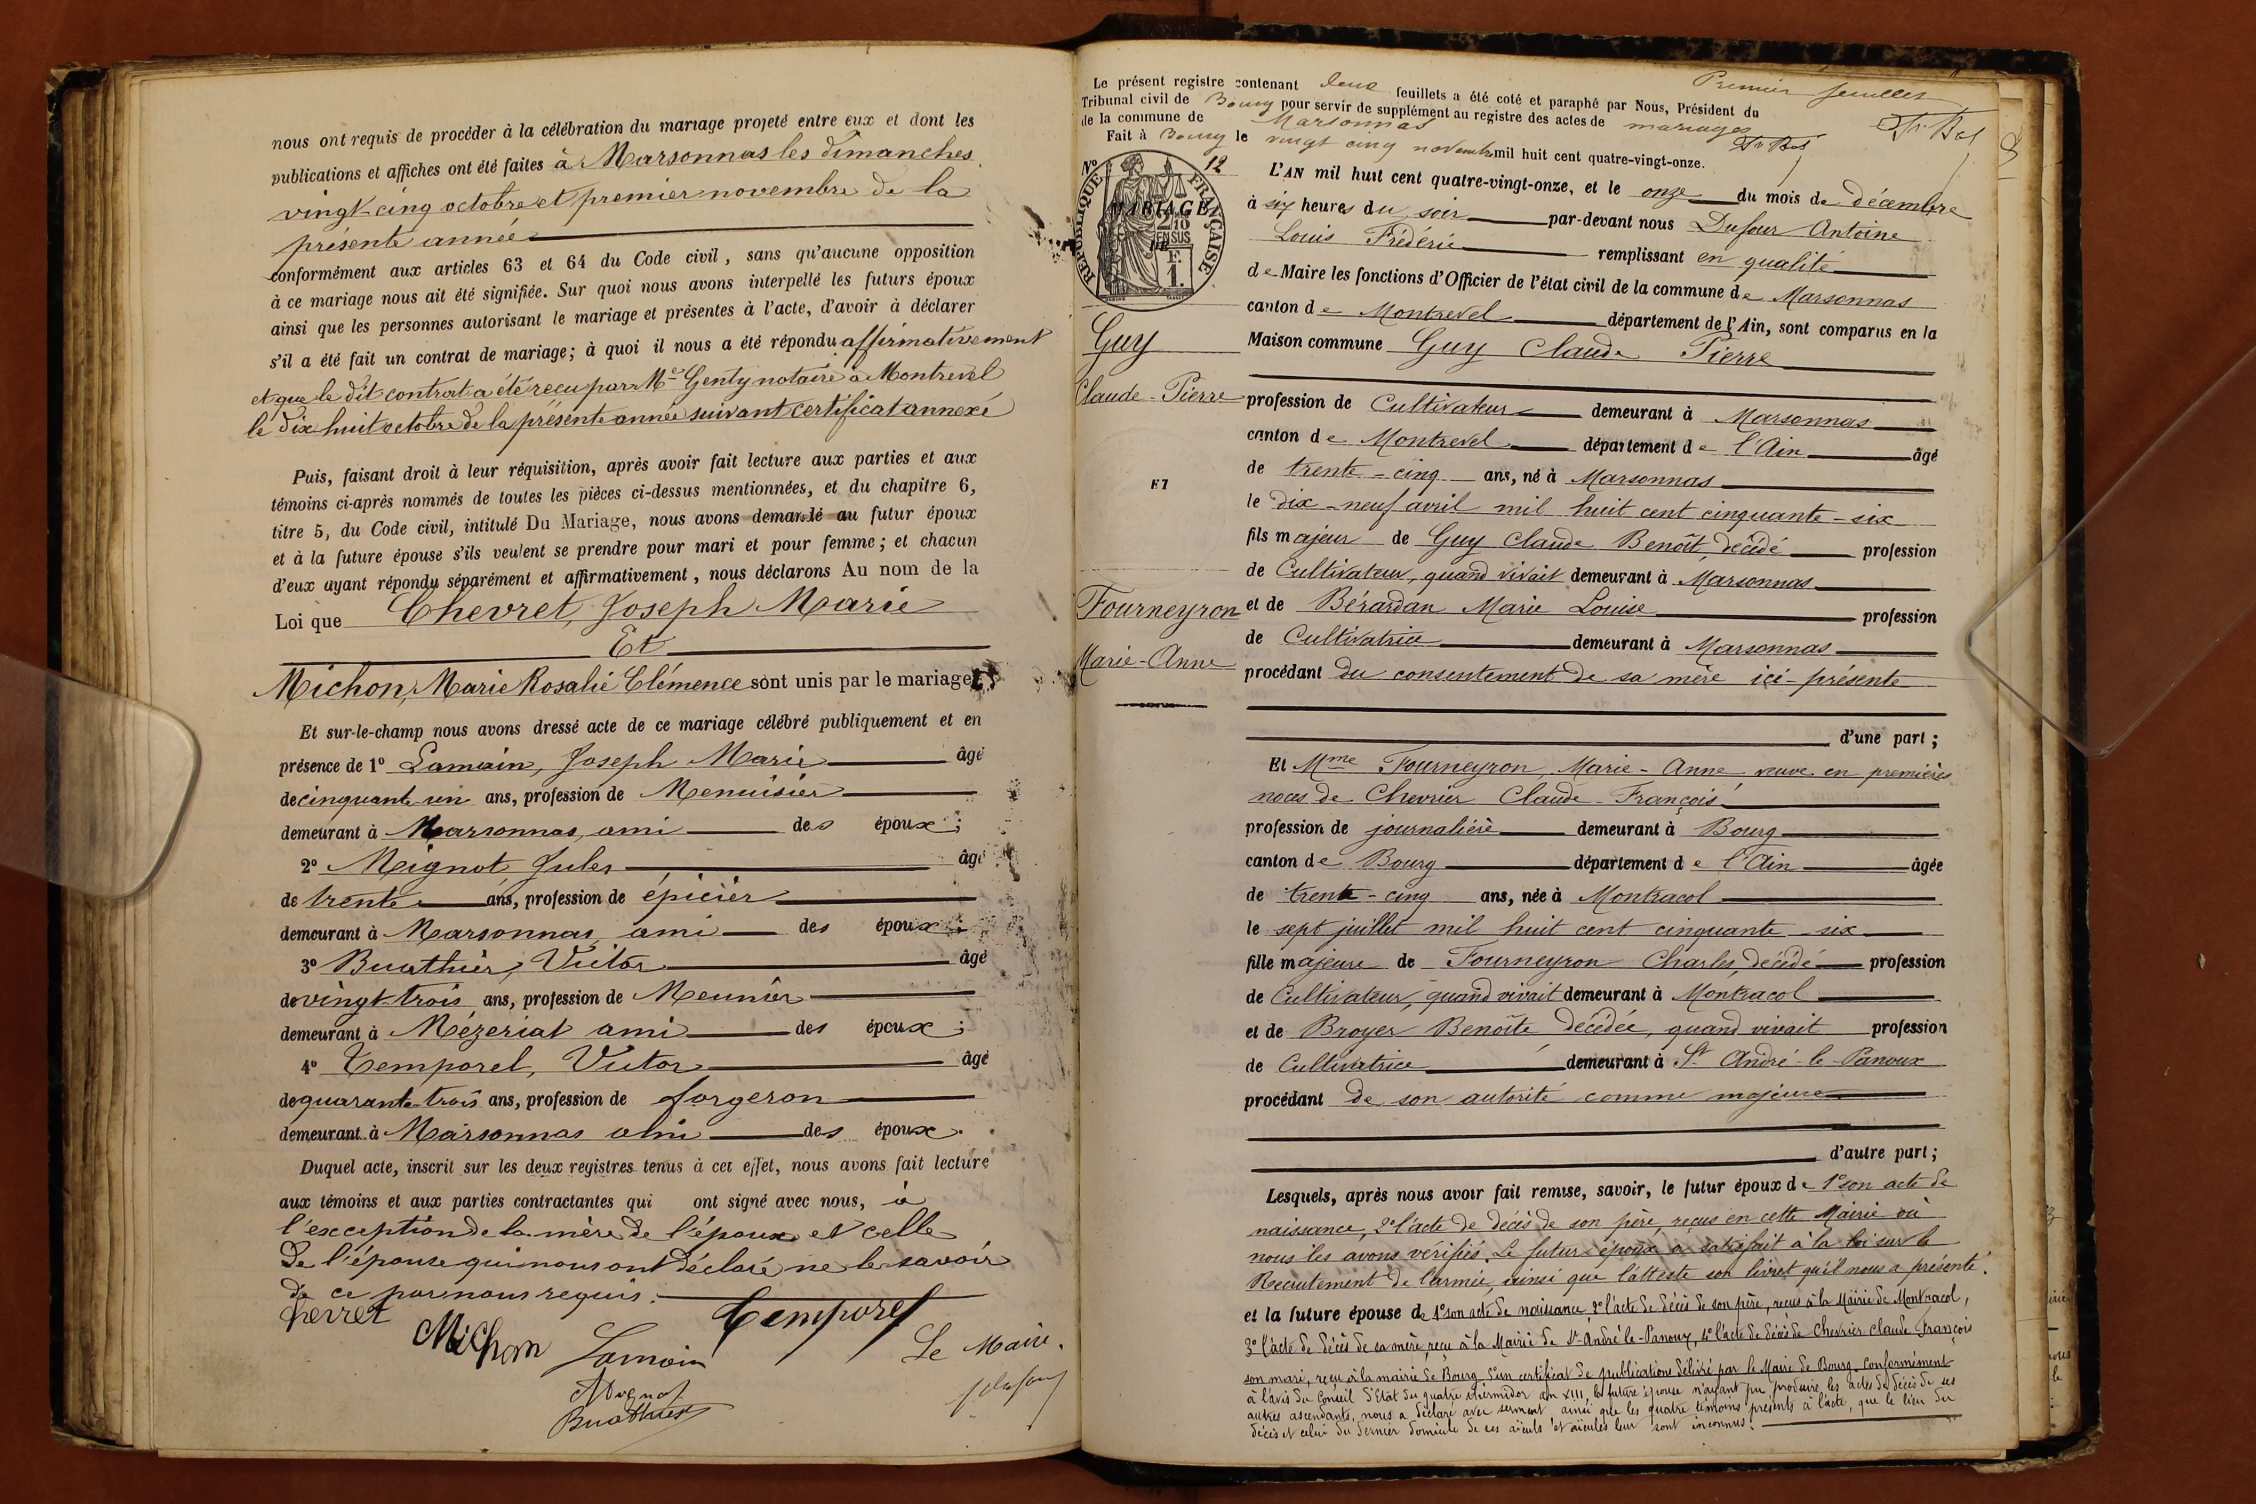 nous ont requis de procéder à la célébration du mariage projeté entre eux et dont les
publications et affiches ont été faites à Marsonnas les dimanches
vingt-cinq octobre et premier novembre de la
présente année
conformément aux articles 63 et 64 du Code civil, sans qu'aucune opposition
à ce mariage nous ait été signifiée. Sur quoi nous avons interpellé les futurs époux
ainsi que les personnes autorisant le mariage et présentes à l'acte, d'avoir à déclarer
s'il a été fait un contrat de mariage; à quoi il nous a été répondu affirmativement
et que le dit contrat a été reçu par Me Genty notaire à Montrevel
le dix-huit octobre de la présente année suivant certificat annexé
Puis, faisant droit à leur réquisition, après avoir fait lecture aux parties et aux
témoins ci-après nommés de toutes les pièces ci-dessus mentionnées, et du chapitre 6,
titre 5, du Code civil, intitulé Du Mariage, nous avons demandé au futur époux
et à la future épouse s'ils veulent se prendre pour mari et pour femme; et chacun
d'eux ayant répondu séparément et affirmativement, nous déclarons Au nom de la
Loi que Chevret, Joseph Marie
Et
Michon, Marie Rosalie Clémence sont unis par le mariage
Et sur-le-champ nous avons dressé acte de ce mariage célébré publiquement et en
présence de 1° Lamain, Joseph Marie âgé
de cinquante un ans, profession de Menuisier
demeurant à Marsonnas, ami des époux;
2° Mignot, Jules âgé
de trente ans, profession de épicier
demeurant à Marsonnas ami des époux;
3° Buathier, Victor âgé
de vingt-trois ans, profession de Meunier
demeurant à Mézeriat ami des époux;
4° Temporel, Victor âgé
de quarante-trois ans, profession de forgeron
demeurant à Marsonnas ami des époux.
Duquel acte, inscrit sur les deux registres tenus à cet effet, nous avons fait lecture
aux témoins et aux parties contractantes qui ont signé avec nous, à
l'exception de la mère de l'époux et celle
de l'épouse qui nous ont déclaré ne le savoir
de ce par nous requis.
Chevret
Michon
Lamain
Temporel
Le Maire.
Mignot
Buathier
Dufour
Premier feuillet
Le présent registre contenant deux feuillets a été coté et paraphé par Nous, Président du
Tribunal civil de Bourg pour servir de supplément au registre des actes de mariages
de la commune de Marsonnas
Fait à Bourg le vingt cinq novembre mil huit cent quatre-vingt-onze.
N° 12
RÉPUBLIQUE FRANÇAISE
MARIAGE
DE
Guy
Claude-Pierre
ET
Fourneyron
Marie-Anne
L'AN mil huit cent quatre-vingt-onze, et le onze du mois de décembre
à six heures du soir par-devant nous Dufour Antoine
Louis Frédéric remplissant en qualité
de Maire les fonctions d'Officier de l'état civil de la commune de Marsonnas
canton de Montrevel département de l'Ain, sont comparus en la
Maison commune Guy Claude Pierre
profession de Cultivateur demeurant à Marsonnas
canton de Montrevel département de l'Ain âgé
de trente-cinq ans, né à Marsonnas
le dix-neuf avril mil huit cent cinquante-six
fils majeur de Guy Claude Benoît, décédé profession
de Cultivateur, quand vivait demeurant à Marsonnas
et de Bérardan Marie Louise profession
de Cultivatrice demeurant à Marsonnas
procédant du consentement de sa mère ici-présente
d'une part;
Et Mme Fourneyron, Marie-Anne veuve en premières
noces de Chevrier Claude-François
profession de journalière demeurant à Bourg
canton de Bourg département de l'Ain âgée
de trente-cinq ans, née à Montracol
le sept juillet mil huit cent cinquante-six
fille majeure de Fourneyron Charles, décédé profession
de Cultivateur, quand vivait demeurant à Montracol
et de Broyer Benoîte décédée, quand vivait profession
de Cultivatrice demeurant à St André-le-Panoux
procédant de son autorité comme majeure
d'autre part;
Lesquels, après nous avoir fait remise, savoir, le futur époux de 1° son acte de
naissance, 2° l'acte de décès de son père, reçus en cette Mairie où
nous les avons vérifiés. Le futur époux a satisfait à la loi sur le
Recrutement de l'armée, ainsi que l'atteste son livret qu'il nous a présenté.
et la future épouse de 1° son acte de naissance 2° l'acte de décès de son père, reçus à la Mairie de Montracol,
3° l'acte de décès de sa mère reçu à la Mairie de St André-le-Panoux, 4° l'acte de décès de Chevrier Claude François
son mari, reçu à la mairie de Bourg. 5° un certificat de publication délivré par le Maire de Bourg. Conformément
à l'avis du Conseil d'Etat du quatre thermidor an XIII, la future épouse n'ayant pu produire les actes de décès de ses
autres ascendants, nous a déclaré avec serment ainsi que les quatre témoins présents à l'acte, que le lieu du
décès et celui du dernier domicile de ses aïeuls et aïeules leur sont inconnus.